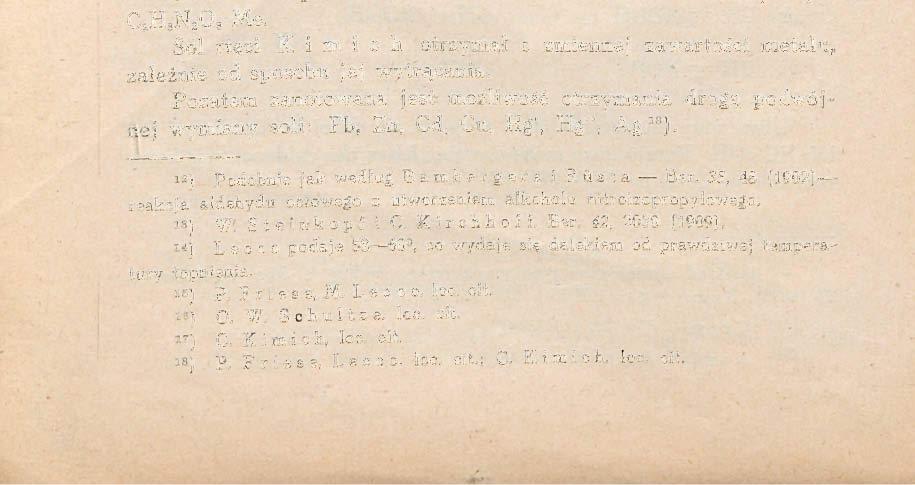 Sól rtęci Kimich otrzymał o zmiennej zawartości metalu,
zależnie od sposobu jej wytrącania.
Pozatem zanotowana jest możliwość otrzymania drogą podwój-
nej wymiany soli: Pb, Zn, Cd, Cu, Hg, Hg, Ag ¹⁸).
¹²) Podobnie jak według Bambergera i Rüsta — Ber. 35, (1902)—
reakcja aldehydu octowego z utworzeniem alkoholu nitroizopropylowego.
¹³) W. Steinkopf i C. Kirchhoff. Ber. 42, (1909).
¹⁴) Lecco podaje co wydaje się dalekiem od prawdziwej tempera-
tury topnienia.
¹⁵) P. Friese, M. Lecco. loc. cit.
¹⁶) O. W. Schultze. loc. cit.
¹⁷) C. Kimich, loc. cit.
¹⁸) P. Friese, Lecco. loc. cit.; C. Kimich. loc. cit.